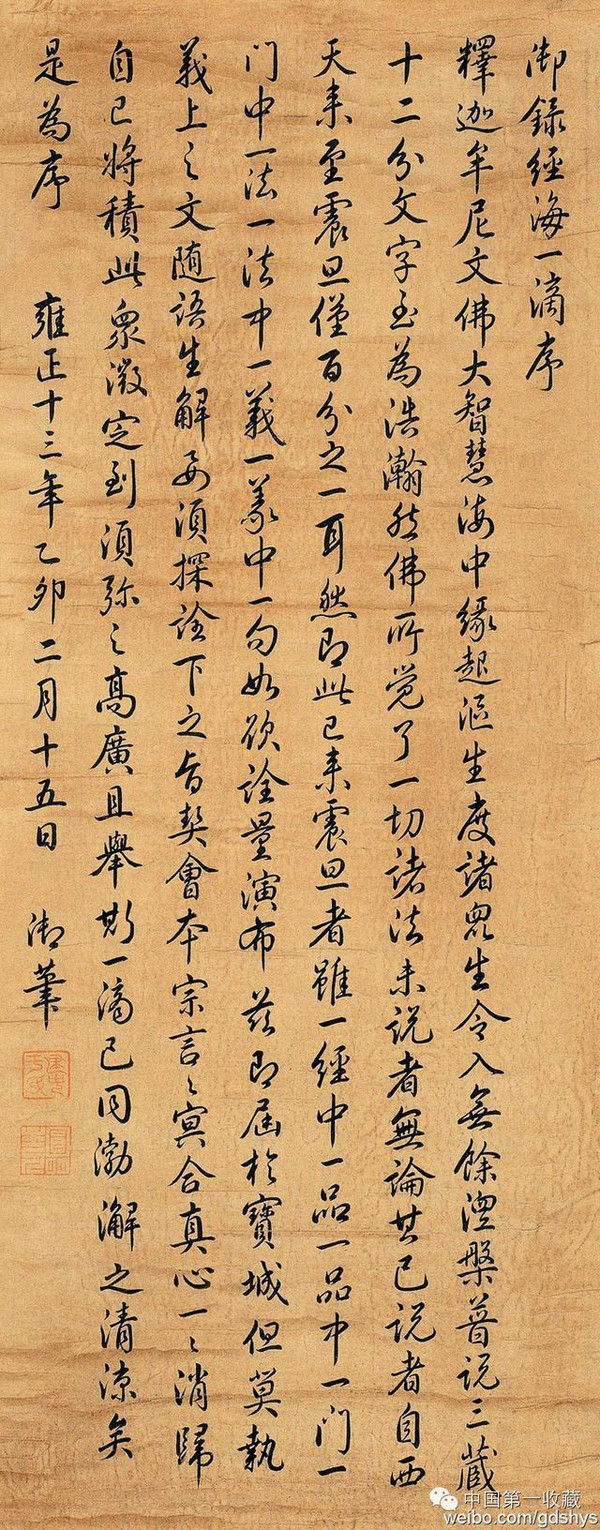 御錄經海一滴序
釋迦牟尼文佛大智慧海中緣起漚生度諸眾生令入無餘涅槃普說三藏
十二分文字至為浩瀚然佛所覺了一切諸法未說者無論其已說者自西
天来至震旦僅百分之一耳然即此已来震旦者雖一經中一品一品中一門一
门中一法一法中一義一義中一句如欲詮量演布茲即屆於寶城但莫執
義上之文随語生解要須探詮下之旨契會本宗言〻冥合真心一〻消歸
自已將積此眾微定到須弥之高廣且舉斯一滴已同渤澥之清涼矣
是為序 雍正十三年乙卯二月十五日 御筆
中国第一收藏
weibo.com/gdshys